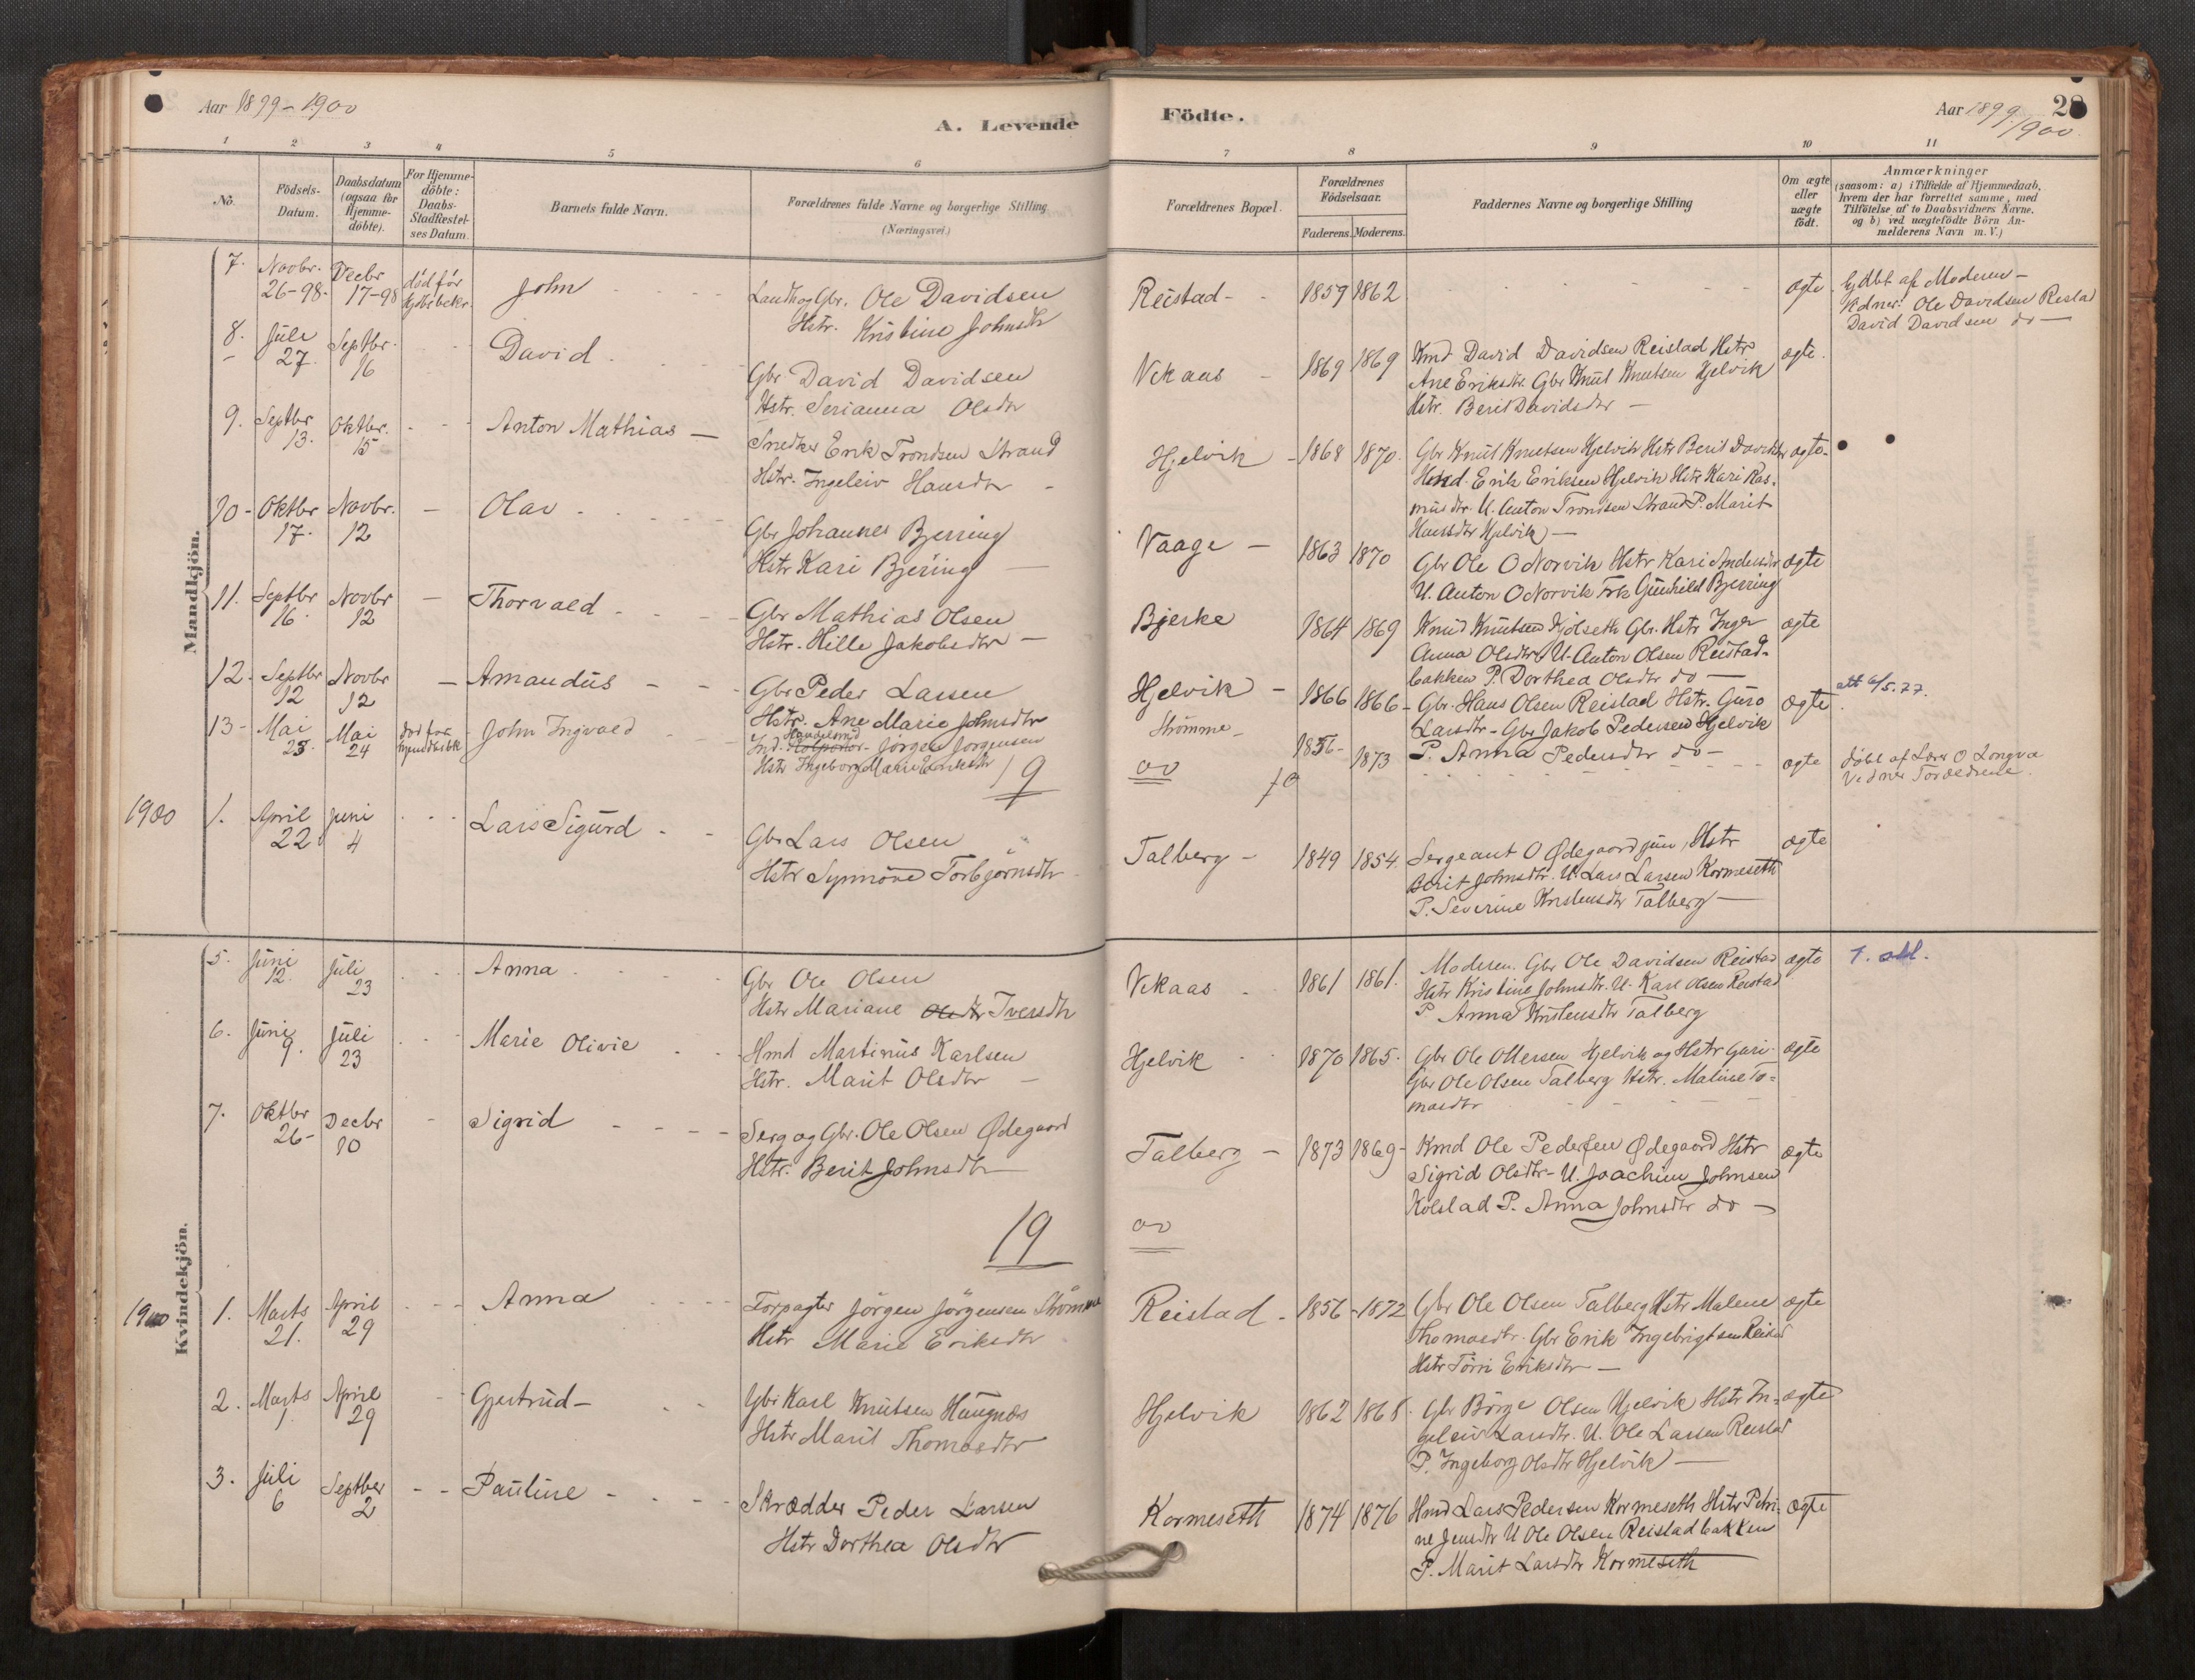 Aar 1899-1900
A. Levende
Födte.
Aar 1899/1900.
28
1 2 3 4 5 6 7 8 9 10 11
No.
Födsels-Datum.
Daabsdatum (ogsaa for Hjemme-döbte).
For Hjemme-döbte: Daabs-Stadfæstel-ses Datum.
Barnets fulde Navn.
Forældrenes fulde Navne og borgerlige Stilling
(Næringsvei.)
Forældrenes Bopæl.
Forældrenes Födselsaar.
Faderens. Moderens.
Faddernes Navne og borgerlige Stilling
Om ægte eller uægte födt.
Anmærkninger
(saasom: a) i Tilfælde af Hjemmedaab,
hvem der har forrettet samme, med
Tilföielse af to Daabsvidners Navne,
og b) ved uægtefödte Börn An-
melderens Navn m. V.)
Mandkjön.
7. Novbr. 26-98. Decbr 17-98 död før John
Landh og Gbr. Ole Davidsen
Hstr. Kristine Johnsdtr
Reistad - 1859 1862 ægte
Hjdbt af Moderen -
Ole Davidsen Reistad
David Davidsen do -
8. Juli 27. Septbr. 16 David
Gbr David Davidsen
Hstr. Serianna Olsdtr
Vekaas - 1869 1869
Kmd David Davidsen Reistad Hstr
Ane Eriksdtr. Gbr Knut Knutsen Hjelvik
Hstr. Berit Davidsdtr -
ægte.
9. Septbr 13. Oktbr. 15 Anton Mathias -
Snedker Erik Trondsen Strand
Hstr. Ingeleiv Hansdtr -
Hjelvik - 1868 1870.
Gbr Knut Knutsen Hjelvik Hstr Berit Davidsdtr
Erik Eriksen Hjelvik Hstr Kari Ras-
musdtr. U. Anton Trondsen Strand P. Marit
Hansdtr Hjelvik -
ægte-
10 - Oktbr 17. Novbr. 12 - Olav
Gbr Johannes Bjerring
Hstr Kari Bjering -
Vaage - 1863 1870
Gbr Ole O Norvik Hstr Kari Andersdtr
U. Anton O Norvik Frk Gunhild Bjerring
ægte
11. Septbr 16. Novbr 12 - Thorvald
Gbr Mathias Olsen
Hstr. Hille Jakobsdtr -
Bjerke 1864 1869
Knud Knutsen Kjölseth Gbr. Hstr Inger
Anna Olsdtr U. Anton Olsen Reistad-
bakken P. Dorthea Olsdtr do -
ægte
12. Septbr 12 Novbr 12 - Amandus
Gbr Peder Larsen
Hstr. Ane Marie Johnsdtr
Hjelvik - 1866 1866 -
Gbr. Hans Olsen Reistad Hstr. Guro
Larsdtr - Gbr Jakob Pedersen Hjelvik
P. Anna Pedersdtr do -
ægte
att 6/5.77.
13 - Mai 23. Mai 24 död før John Ingvald
Handelsmd
Ind. Kolportör - Jörgen Jörgensen
Hstr Ingeborg Marie Eriksdtr
Strömme - 1856 - 1873 ægte
döbt af Lærer O Longva
Vidner Forældrene.
19
1900
1. April 22 Juni 4 Lars Sigurd
Gbr Lars Olsen
Hstr Synnöve Torbjörnsdtr
Talberg - 1849 1854.
Sergeant O Ødegaard jun, Hstr
Berit Johnsdtr. U. Lars Larsen Kormeseth
P. Severine Kristensdtr Talberg -
ægte
Kvindekjön.
5. Juni 12. Juli 23 Anna
Gbr Ole Olsen
Hstr Mariane Olsdtr Iversdtr
Vekaas - 1861 1861.
Moderen. Gbr Ole Davidsen Reistad
Hstr Kristine Johnsdtr. U. Karl Olsen Reistad
P Anna Kristensdtr Talberg
ægte
1. att.
6. Juni 9. Juli 23 Marie Olivie
Hmd Martinus Karlsen
Hstr. Marit Olsdtr -
Hjelvik 1870 1865.
Gbr Ole Ottersen Hjelvik og Hstr Guri.
Gbr Ole Olsen Talberg Hstr. Maline To-
masdtr
ægte
7. Oktbr 26 - Decbr 10 - Sigrid
Serg og Gbr. Ole Olsen Ødegaard
Hstr. Berit Johnsdtr
Talberg - 1873 1869 -
Kmd Ole Pedersen Ødegaard Hstr
Sigrid Olsdtr - U. Joachim Johnsen
Kolstad P. Anna Johnsdtr do -
ægte
19
1900
1. Marts 21. April 29 Anna
Forpagter Jörgen Jörgensen Strömme
Hstr Marie Eriksdtr
Reistad - 1856 - 1872
Gbr Ole Olsen Talberg Hstr Malene
Thomasdtr. Gbr Erik Ingebrigtsen Reistad
Hstr Törri Eriksdtr -
ægte
2. Marts 1. April 29 - Gjertrud -
Gbr Karl Knutsen Haugnæs
Hstr Marit Thomasdtr
Hjelvik 1862 1868.
Gbr Börge Olsen Hjelvik Hstr In-
geleiv Larsdtr. U. Ole Larsen Reistad
P. Ingeborg Olsdtr Hjelvik -
ægte
3. Juli 6 Septber 2 - - Pauline -
Skrædder Peder Larsen
Hstr Dorthea Olsdtr
Kormeseth 1874 1876
Hmd Lars Pedersen Kormeseth Hstr Petri-
ne Jensdtr U Ole Olsen Reistadbakken
P. Marit Larsdtr Kormeseth
ægte